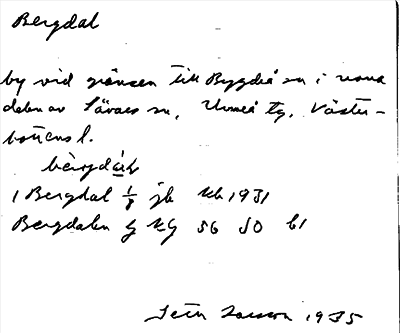 Bergdal
by vid gränsen till Bygdeå sn i norra
delen av Sävars sn, Umeå tg, Väster-
bottens l.
1 Bergdal 1/8 jb 1931
Bergdalen G KG 56 50 61
1935